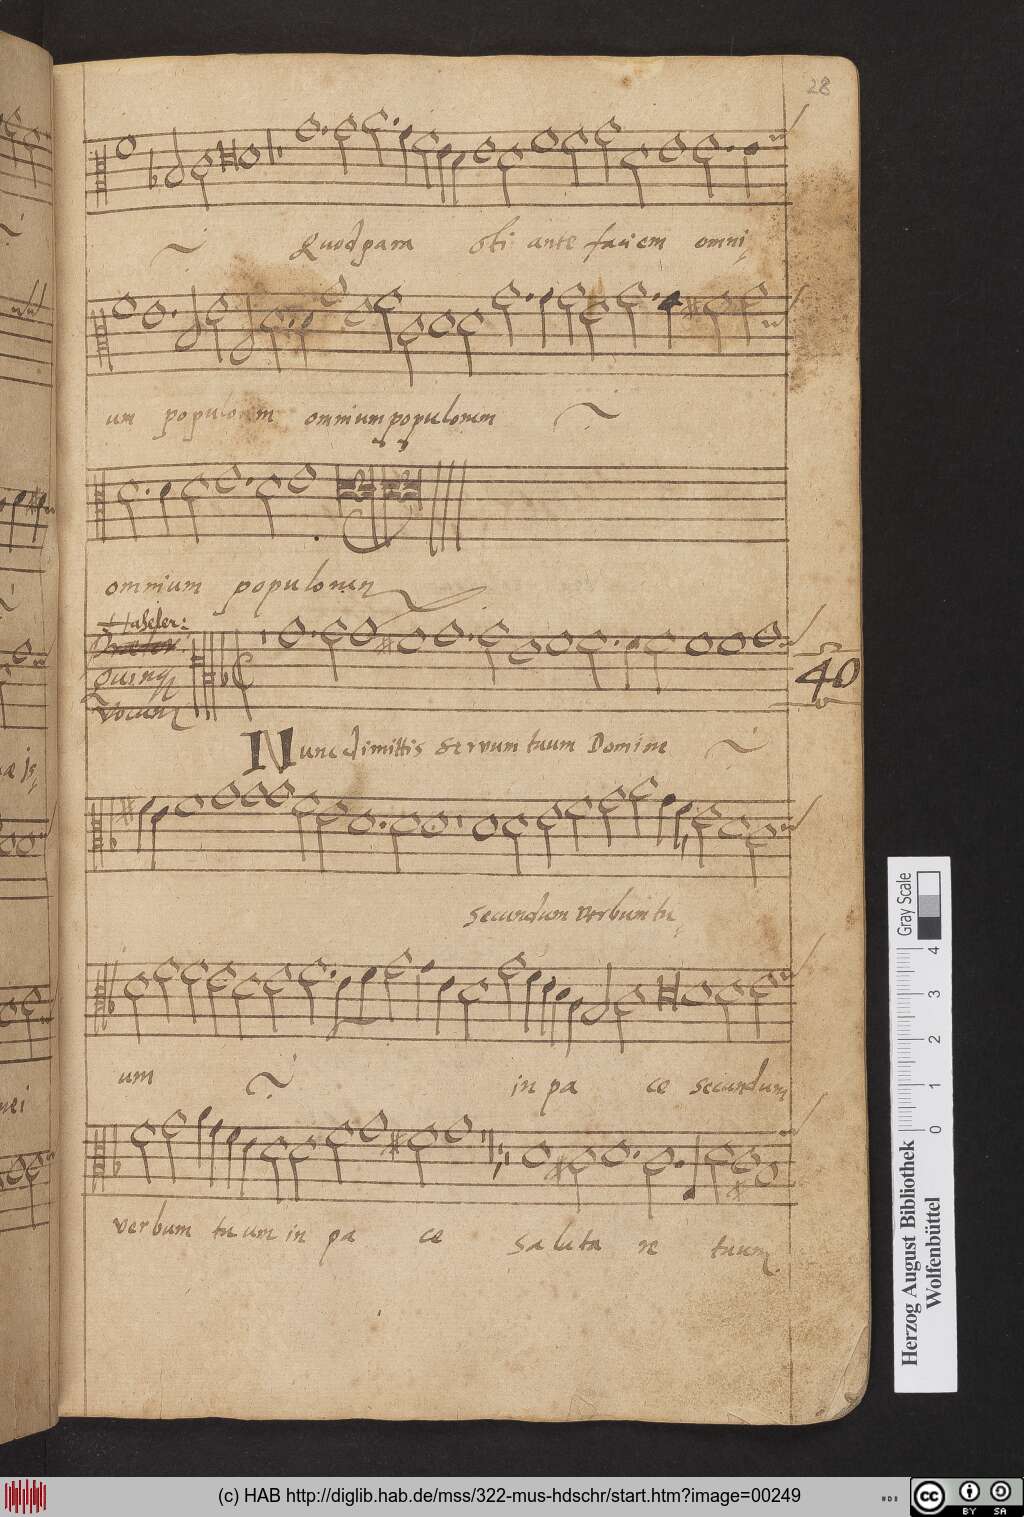 28
Quod para sti ante faciem omni
um populorum omnium populorum
omnium populorum
Hasler:
Quinq
vocum
40
Nunc dimittis servum tuum Domine
secundum verbum tu
um in pa ce secundum
verbum tu um in pa ce Sa lu ta re tuum
Gray Scale
0 1 2 3 4
Herzog August Bibliothek
Wolfenbüttel
(c) HAB http://diglib.hab.de/mss/322-mus-hdschr/start.htm?image=00249
cc BY SA